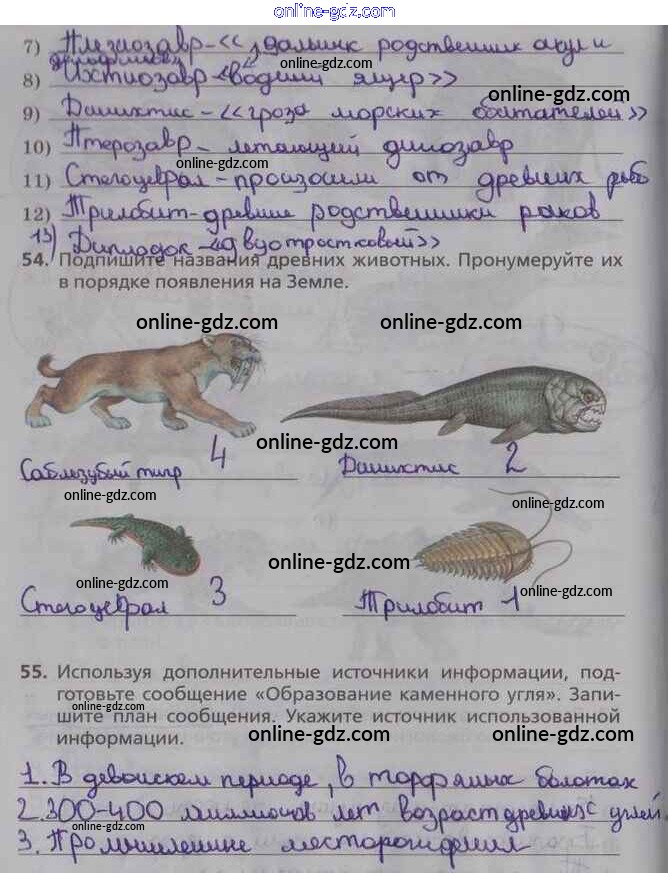 online-gdz.com
7) Плезиозавр - « дальник родственник акул и
дельфинов
8) Ихтиозавр «водный ящер»
online-gdz.com
9) Данихтис - «гроза морских обитателей»
10) Птерозавр - летающий динозавр
online-gdz.com
online-gdz.com
11) Стегоцефрал - произошли от древних рыб
online-gdz.com
12) Трилобит - древние родственники раков
13) Диплодок - «двуотростковый»
54. Подпишите названия древних животных. Пронумеруйте их
в порядке появления на Земле.
online-gdz.com online-gdz.com
online-gdz.com
Саблезубый тигр 4 Данихтис 2
online-gdz.com
online-gdz.com
online-gdz.com
online-gdz.com
online-gdz.com
Стегоцефрал 3 Трилобит 1
55. Используя дополнительные источники информации, под-
готовьте сообщение «Образование каменного угля». Запи-
шите план сообщения. Укажите источник использованной
информации.
online-gdz.com online-gdz.com
1. В девонском периоде, в торфяных болотах
online-gdz.com
2. 300-400 миллионов лет возраст древних углей.
online-gdz.com
3. Промышленные месторождения
online-gdz.com